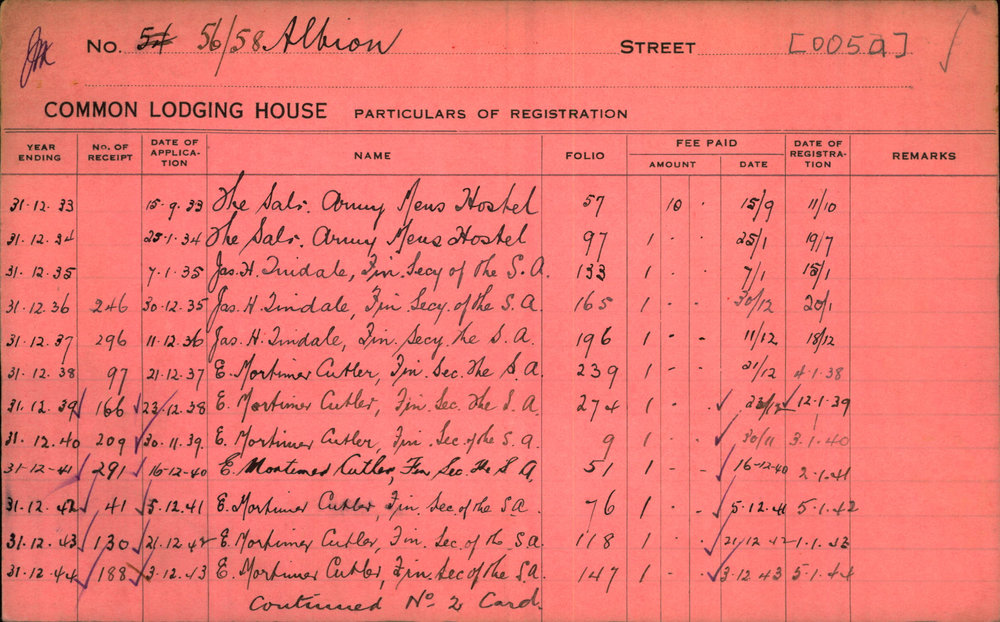 No. 54 56/58 Albion STREET [005a]
COMMON LODGING HOUSE PARTICULARS OF REGISTRATION
YEAR ENDING NO. OF RECEIPT DATE OF APPLICATION NAME FOLIO FEE PAID AMOUNT DATE DATE OF REGISTRATION REMARKS
31.12.33 15.9.33 The Salv. Army Mens Hostel 57 10 . 15/9 11/10
31.12.34 25.1.34 The Salv. Army Mens Hostel 97 1 . . 25/1 19/7
31.12.35 7.1.35 Jas. H. Tindale, Fin. Secy of the S.A. 133 1 . . 7/1 15/1
31.12.36 246 30.12.35 Jas. H. Tindale, Fin. Secy. of the S.A. 165 1 . . 30/12 20/1
31.12.37 296 11.12.36 Jas. H. Tindale, Fin. Secy the S.A. 196 1 . . 11/12 18/12
31.12.38 97 21.12.37 E. Mortimer Cutler, Fin. Sec. The S.A. 239 1 . . 21/12 4.1.38
31.12.39 166 23.12.38 E. Mortimer Cutler, Fin. Sec. The S.A. 274 1 . . 23/12 12.1.39
31.12.40 209 30.11.39. E. Mortimer Cutler, Fin. Sec. of the S.A. 9 1 . . 30/11 3.1.40
31-12-41 291 16-12-40 E. Mortimer Cutler, Fin Sec. the S A 51 1 . . 16-12-40 2-1.41
31.12.42 41 5.12.41 E. Mortimer Cutler, Fin. Sec. of the S.A. 76 1 . . 5.12.41 5.1.42
31.12.43 130 21.12.42 E. Mortimer Cutler, Fin. Sec. of the S.A. 118 1 . . 21/12 42 1.1.43
31.12.44 188 3.12.43 E. Mortimer Cutler, Fin. Sec of the S.A. 147 1 . . 3.12.43 5.1.44
Continued No 2 Card.